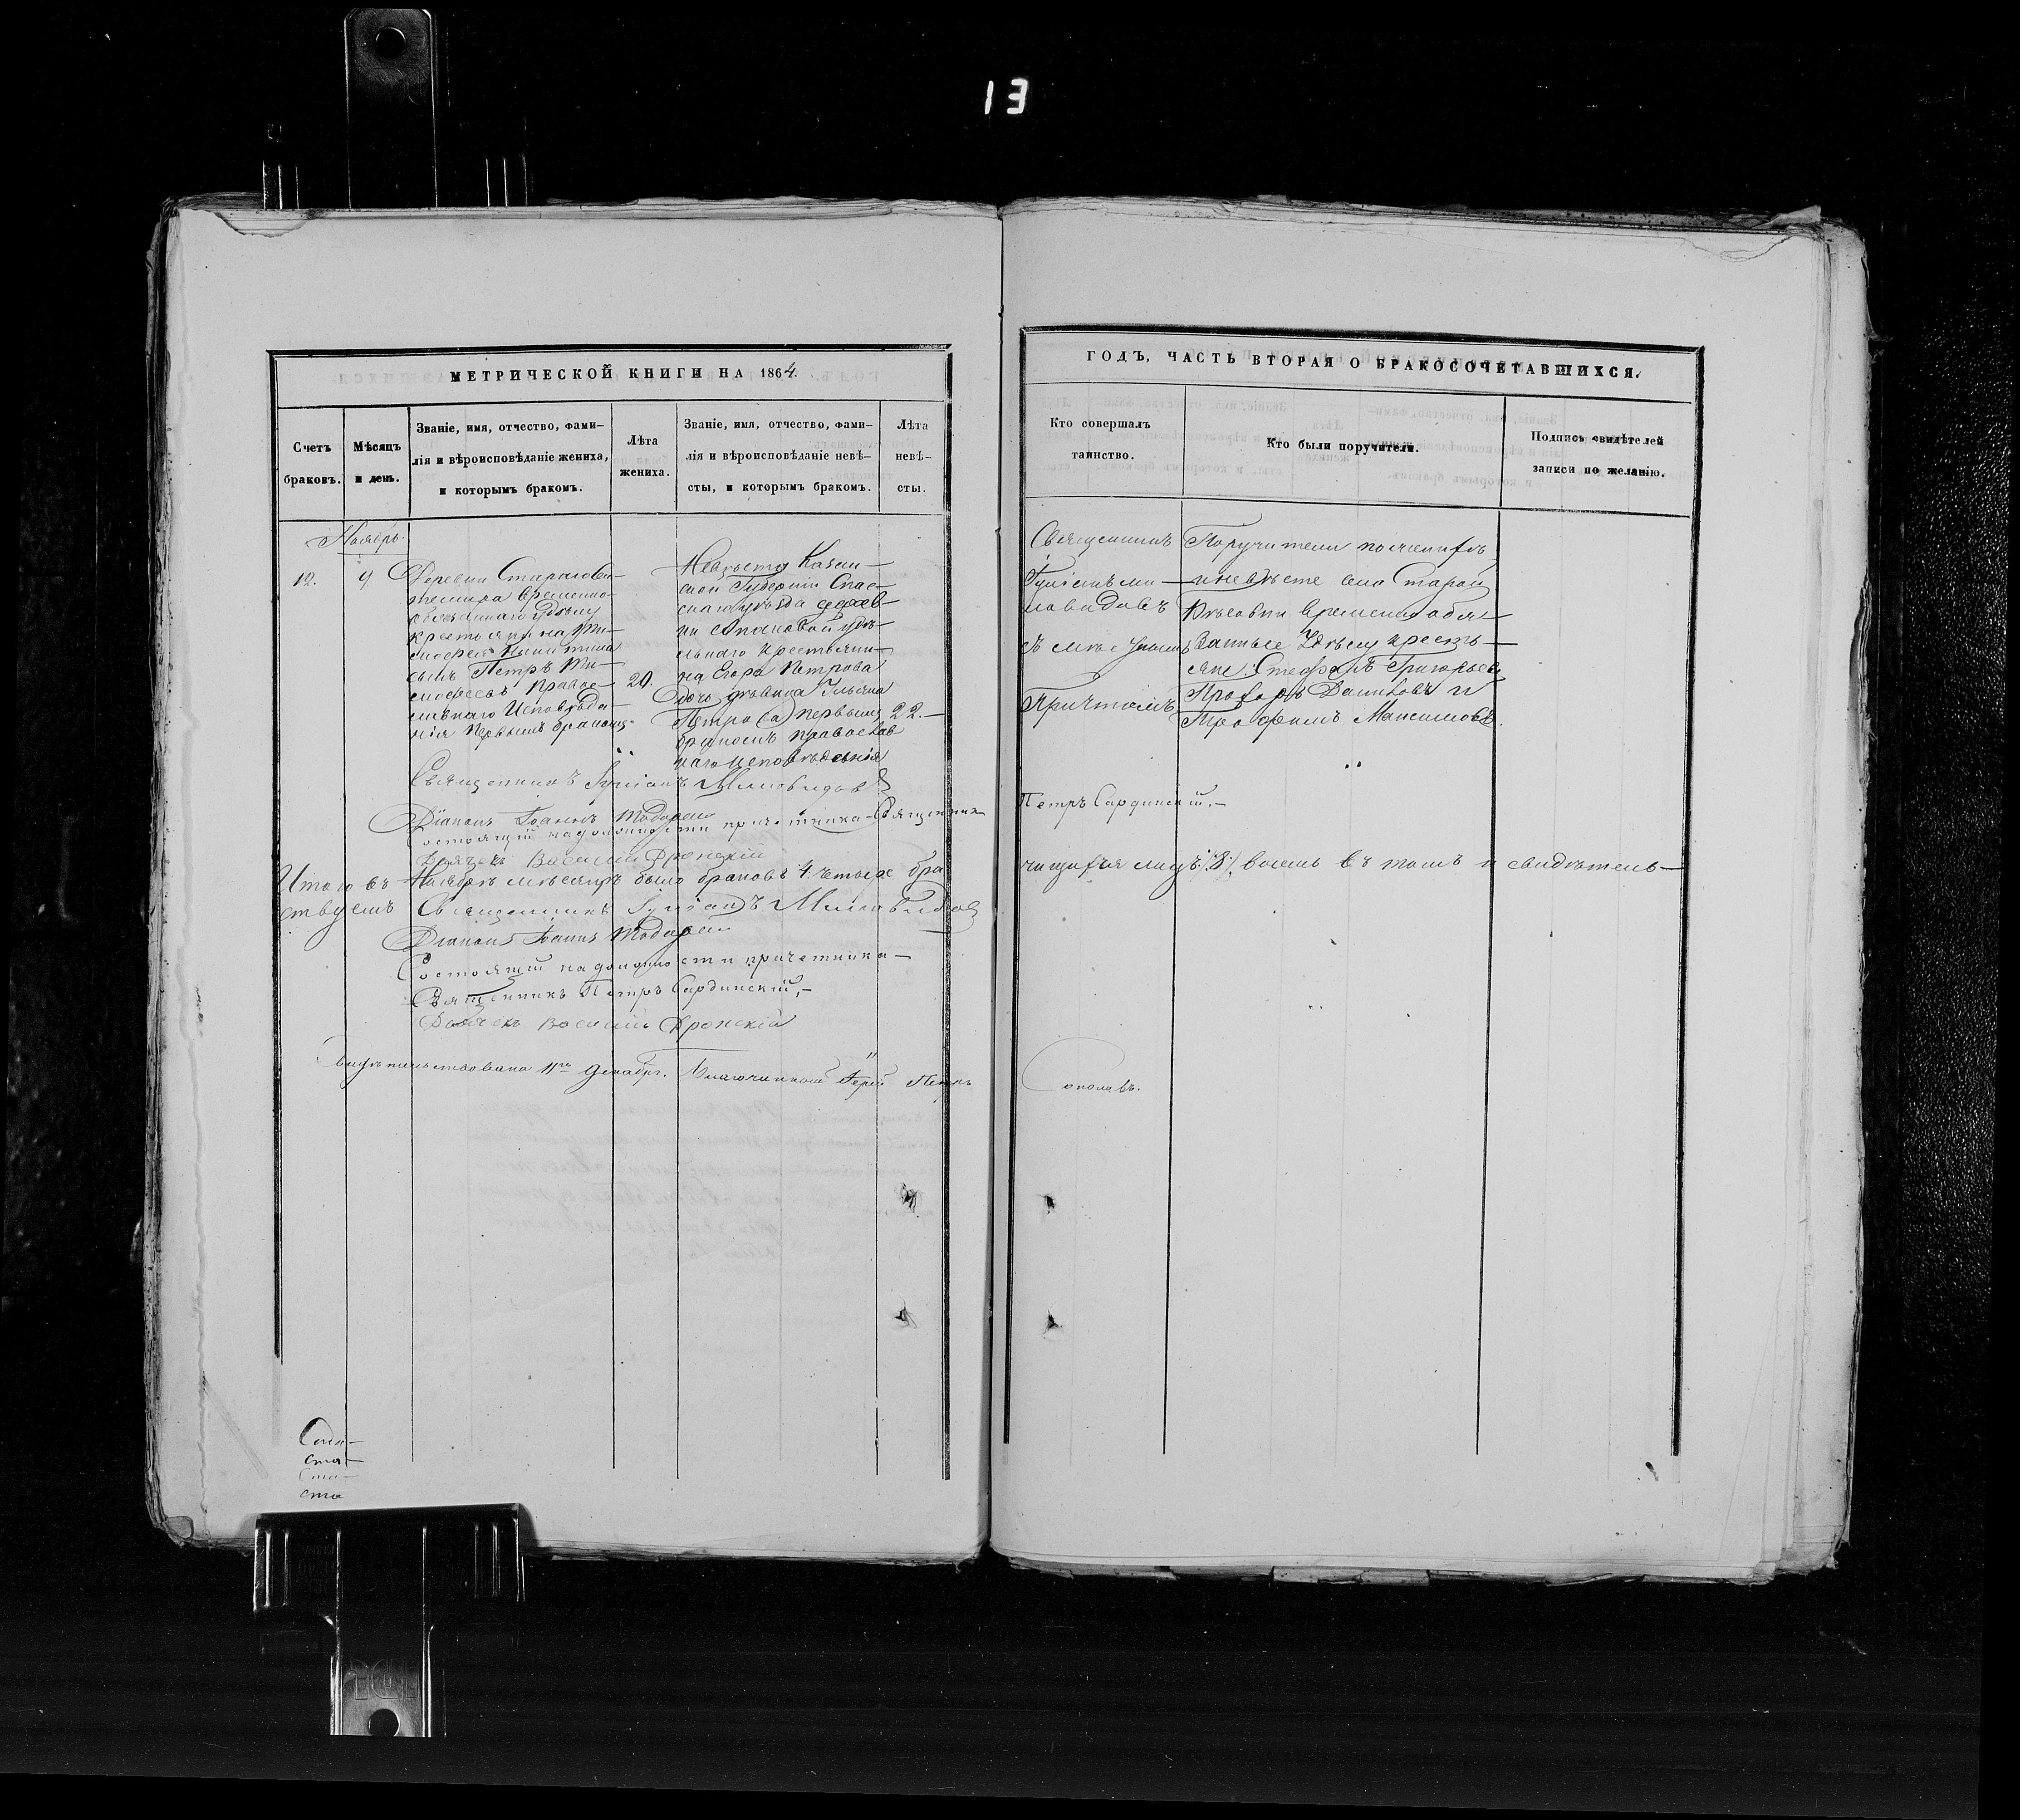 13
МЕТРИЧЕСКОЙ КНИГИ НА 1864.
Счетъ браковъ.
Мѣсяцъ и день.
Званіе, имя, отчество, фами-
лія и вѣроисповѣданіе жениха,
и которымъ бракомъ.
Лѣта
жениха.
Званіе, имя, отчество, фами-
лія и вѣроисповѣданіе невѣ-
сты, и которымъ бракомъ.
Лѣта
невѣ-
сты.
Ноябрь.
12.
9
Деревни
временно-
обязаннаго Удѣлу
крестьянина Ти-
мофея Никитина
сынъ Петръ Ти-
мофеевъ Правос-
лавнаго Исповѣда-
нія первымъ бракомъ
20.
Невѣста Казан-
ской Губерніи Спас-
скаго уѣзда дерев-
ни удѣ-
льнаго крестьяни-
на Егора Петрова
дочь дѣвица Ульяна
Петрова первымъ
бракомъ православ
наго исповѣданія
22.
Священникъ Іуліанъ Миловидовъ
Діаконъ Іоаннъ
Состоящій на должности причетника Священникъ
Дьячекъ Василій
Итого въ Ноябрѣ мѣсяцѣ было браковъ 4. четыре бра
ствуемъ Священникъ Іуліанъ Миловидовъ
Діаконъ Іоаннъ
Состоящій на должности причетника
Священникъ Петръ Сардинскій,
Дьячекъ Василій
Свидѣтельствовано 11го Декабря. Благочинный Іерей Петръ
ГОДЪ, ЧАСТЬ ВТОРАЯ О БРАКОСОЧЕТАВШИХСЯ.
Кто совершалъ
таинство.
Кто были поручители.
Подпись свидѣтелей
записи по желанію.
Священникъ
Іуліанъ Ми-
ловидовъ
Причтомъ
Поручители по женихѣ
и невѣсте села Старой
временно обя-
занные Удѣлу кресть-
яне: Стефанъ Григорьевъ
Прохоръ Даниловъ и
Трофимъ Максимовъ.
Петръ Сардинскій,
чищихся лицъ (8) восемь въ томъ и свидѣтель-
Соколовъ.